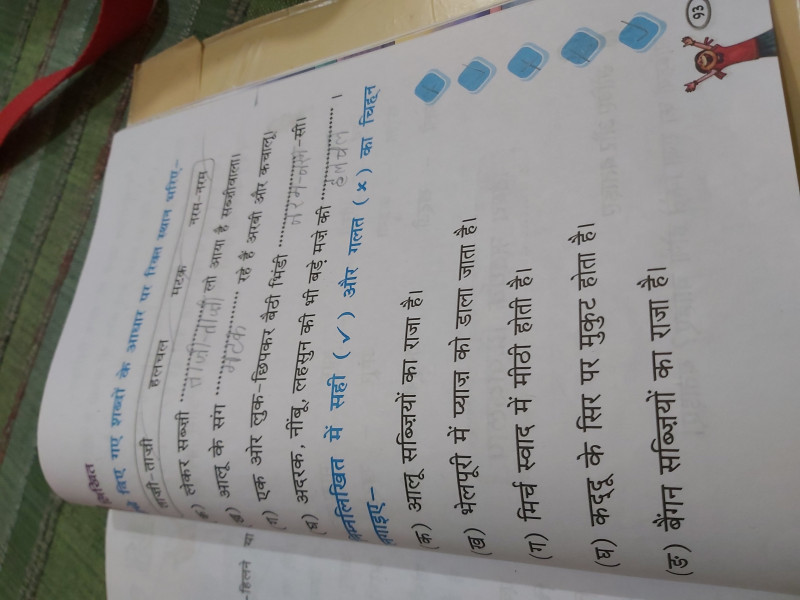 लिखित
दिए गए शब्दों के आधार पर रिक्त स्थान भरिए–
ताज़ी-ताज़ी हलचल मटक नरम-नरम
लेकर सब्ज़ी ताज़ी-ताज़ी लो आया है सब्ज़ीवाला।
आलू के संग मटक रहे हैं अरबी और कचालू।
(ग) एक ओर लुक-छिपकर बैठी भिंडी नरम-नरम-सी।
(घ) अदरक, नींबू, लहसुन की भी बड़े मज़े की हलचल।
निम्नलिखित में सही (✓) और गलत (×) का चिह्न
लगाइए–
(क) आलू सब्ज़ियों का राजा है।
(ख) भेलपूरी में प्याज़ को डाला जाता है।
(ग) मिर्च स्वाद में मीठी होती है।
(घ) कद्दू के सिर पर मुकुट होता है।
(ङ) बैंगन सब्ज़ियों का राजा है।
93
-हिलने या